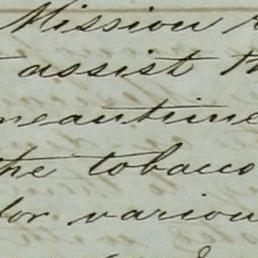 Mission
assist th
meantime
the tobacco
for variou